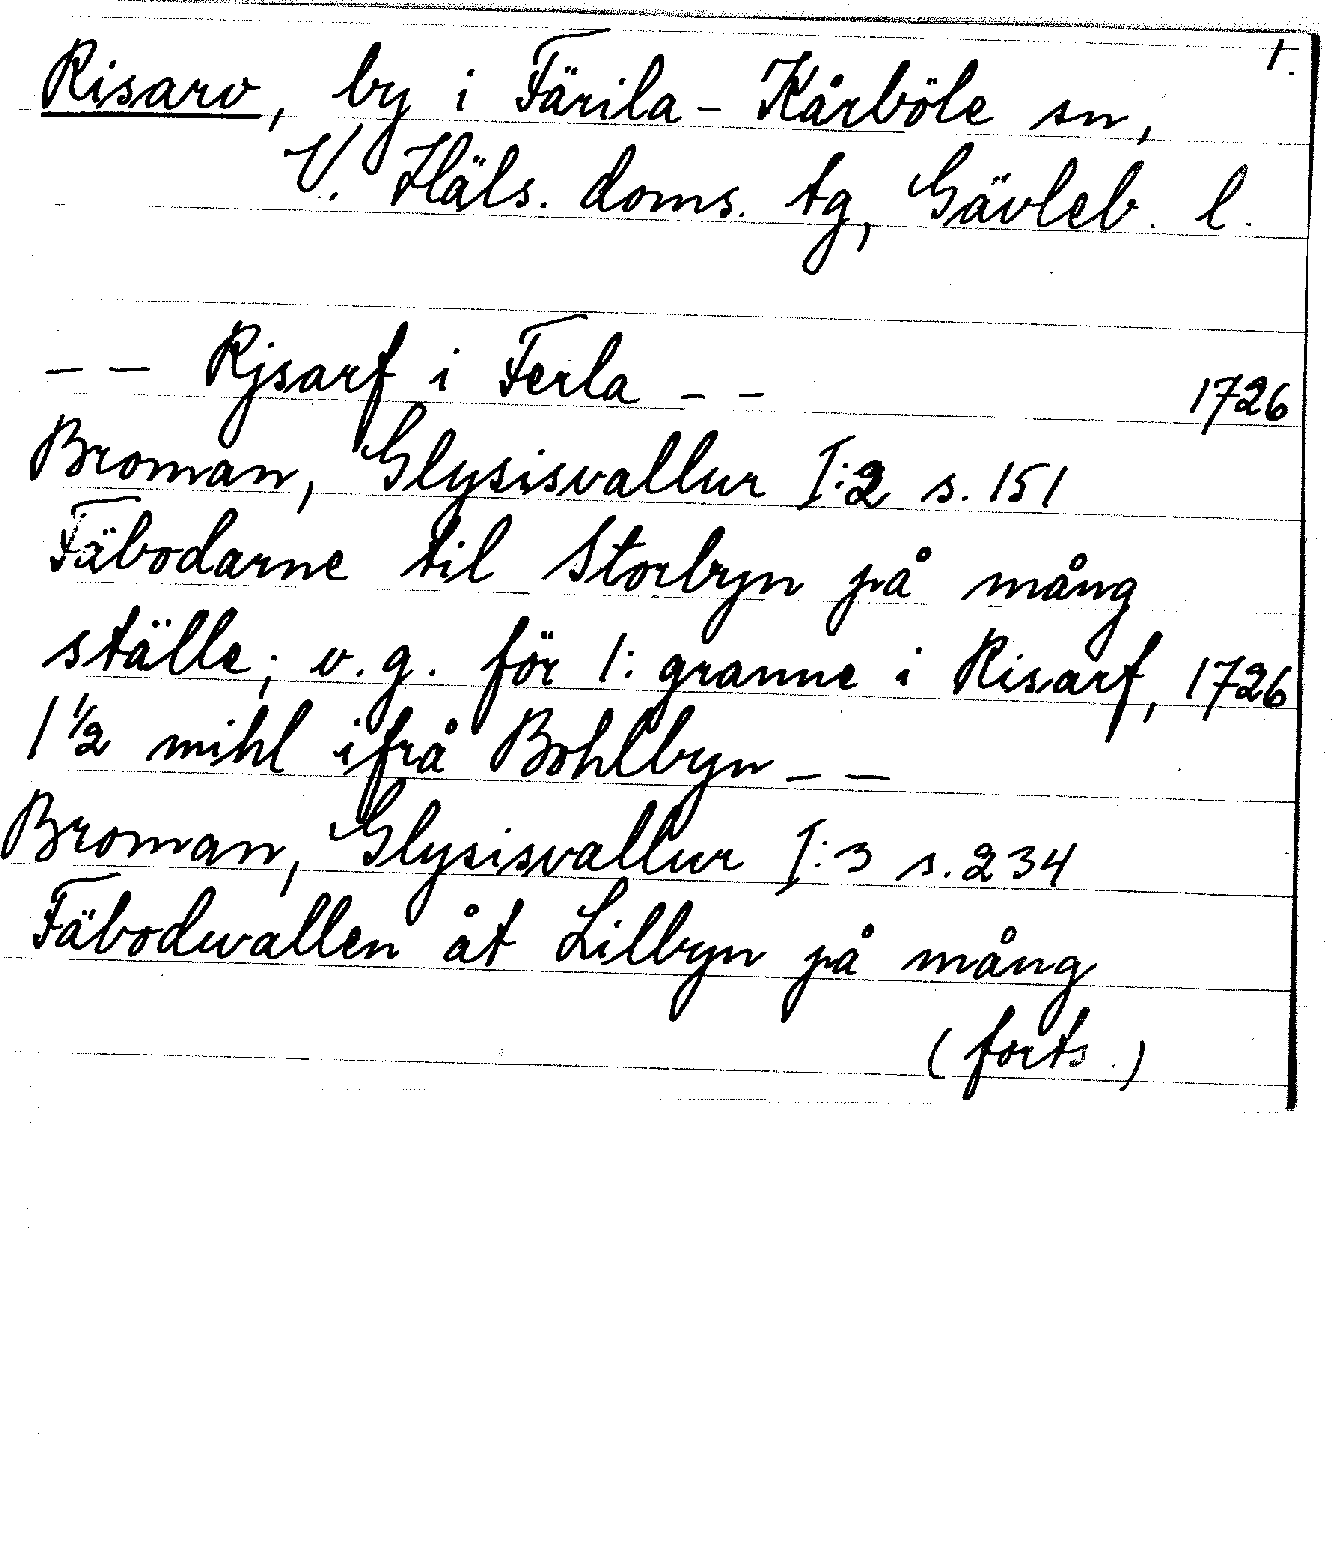 1.
Risarv, by i Färila - Kårböle sn,
V. Häls. doms. tg, Gävleb. l.
– – Rjsarf i Ferla – – 1726
Broman, Glysisvallur I:2 s. 151
Fäbodarne til Storbyn på mång
ställe; v.g. för 1: granne i Risarf, 1726
1 1/2 mihl ifrå Bohlbyn – –
Broman, Glysisvallur I:3 s. 234
Fäbodwallen åt Lillbyn på mång
(forts.)